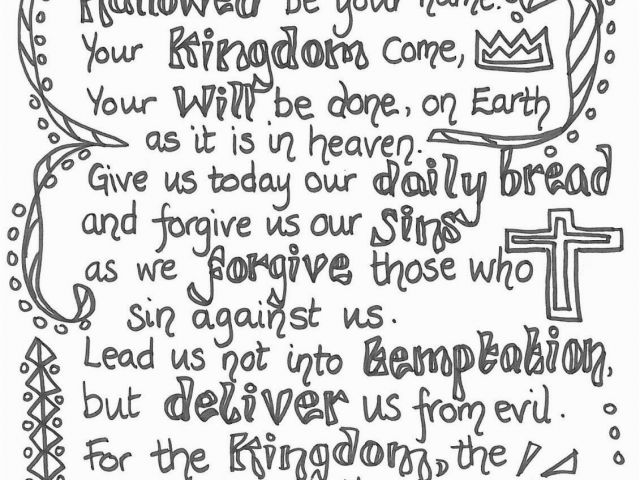 Hallowed be your name.
Your Kingdom come,
Your Will be done, on Earth
as it is in heaven.
Give us today our daily bread
and forgive us our sins
as we forgive those who
sin against us.
Lead us not into temptation,
but deliver us from evil.
For the Kingdom, the